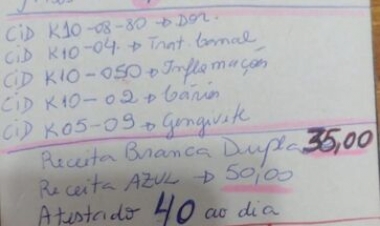 CiD K10-08-80 → Dor.
CiD K10-04 → Trat. Canal
CiD K10-050 → Inflamação
CiD K10-02 → Cárie
CiD K05-09 → Gengivite
Receita Branca Dupla 35,00
Receita AZUL → 50,00
Atestado 40 ao dia